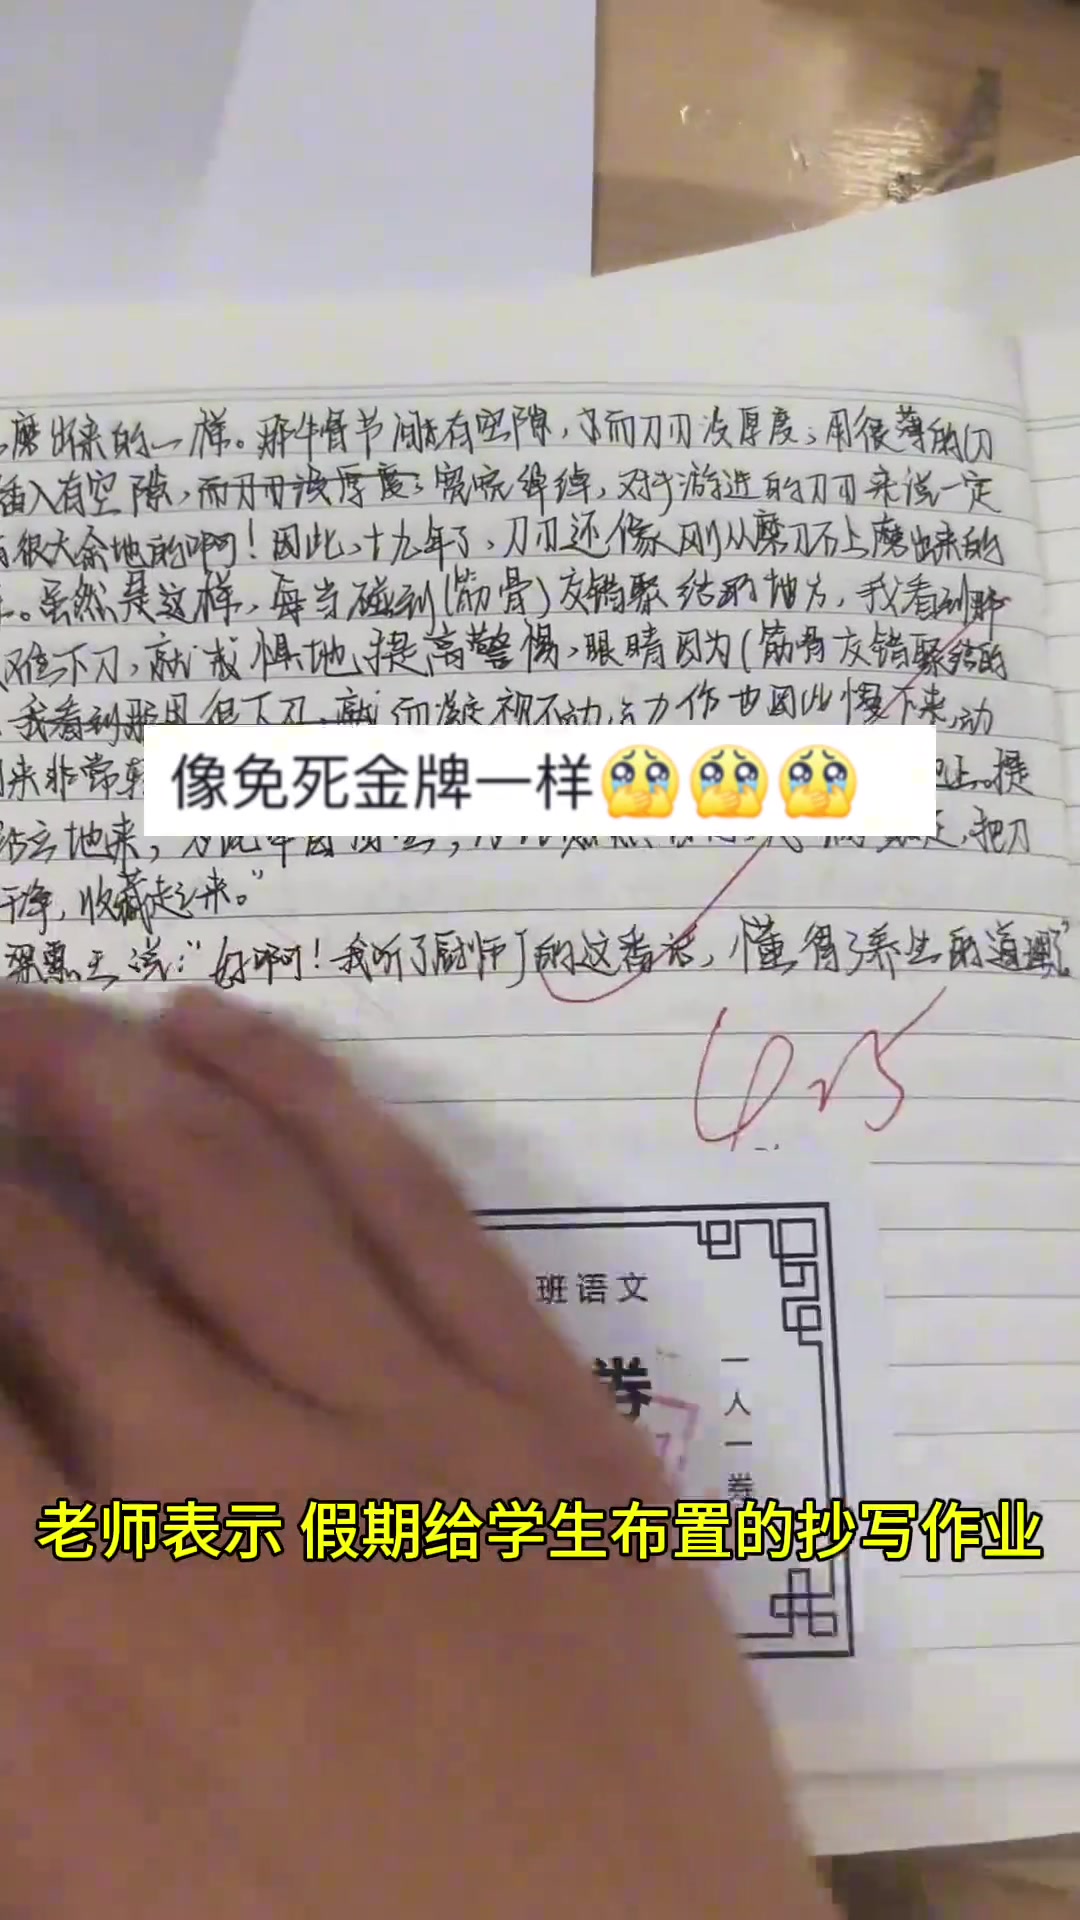 磨出来的一样。那牛骨节间有空隙，而刀刃没厚度；用很薄的(刀
插入有空隙，而刀刃没厚度；宽宽绰绰，对于游进的刀刃来说一定
很大余地的啊！因此，十九年了，刀刃还像刚从磨刀石上磨出来的
。虽然是这样，每当碰到(筋骨)交错聚结的地方，我看到那
难下刀，就 惧地提高警惕，眼睛因为(筋骨交错聚结的
我看到那 但下刀 就 而 视不动 动作也因此慢下来，动
来非常轻
像免死金牌一样🥹🥹🥹
上。提
站立地来，为此 把刀
干净，收藏起来。”
梁惠王说：“好啊！我听了厨师丁的这番话，懂得了养生的道理了”
班语文
券
一人一券
老师表示 假期给学生布置的抄写作业